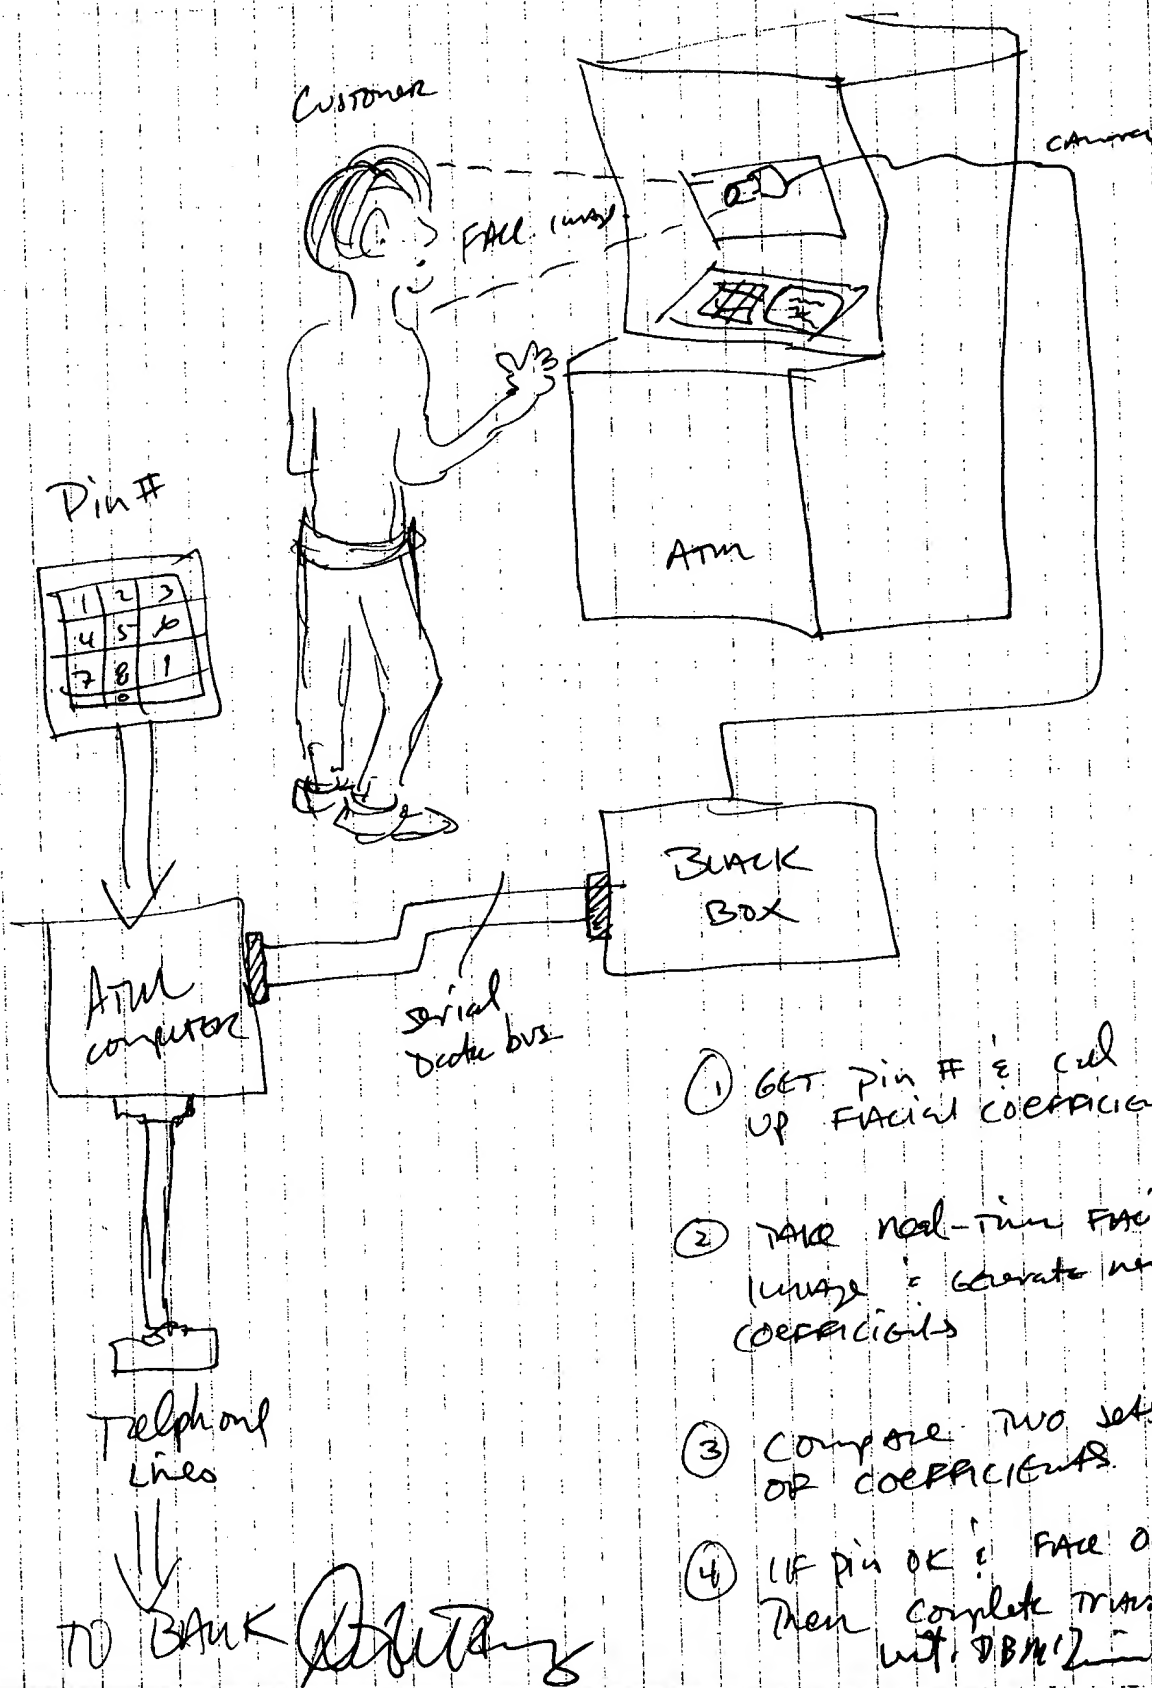 CUSTOMER
CAMERA
FACE IMAGE
Pin #
1 2 3
4 5 6
7 8 9
0
ATM
BLACK
BOX
ATM
COMPUTER
serial
Data bus
① GET pin # & call
UP FACIAL COEFFICIE
② TAKE real-time FACI
IMAGE & GENERATE ne
COEFFICIENTS
③ COMPARE TWO sets
OF COEFFICIENTS.
④ IF pin OK & FACE O
Then complete TRANS
Telphone
Lines
TO BANK